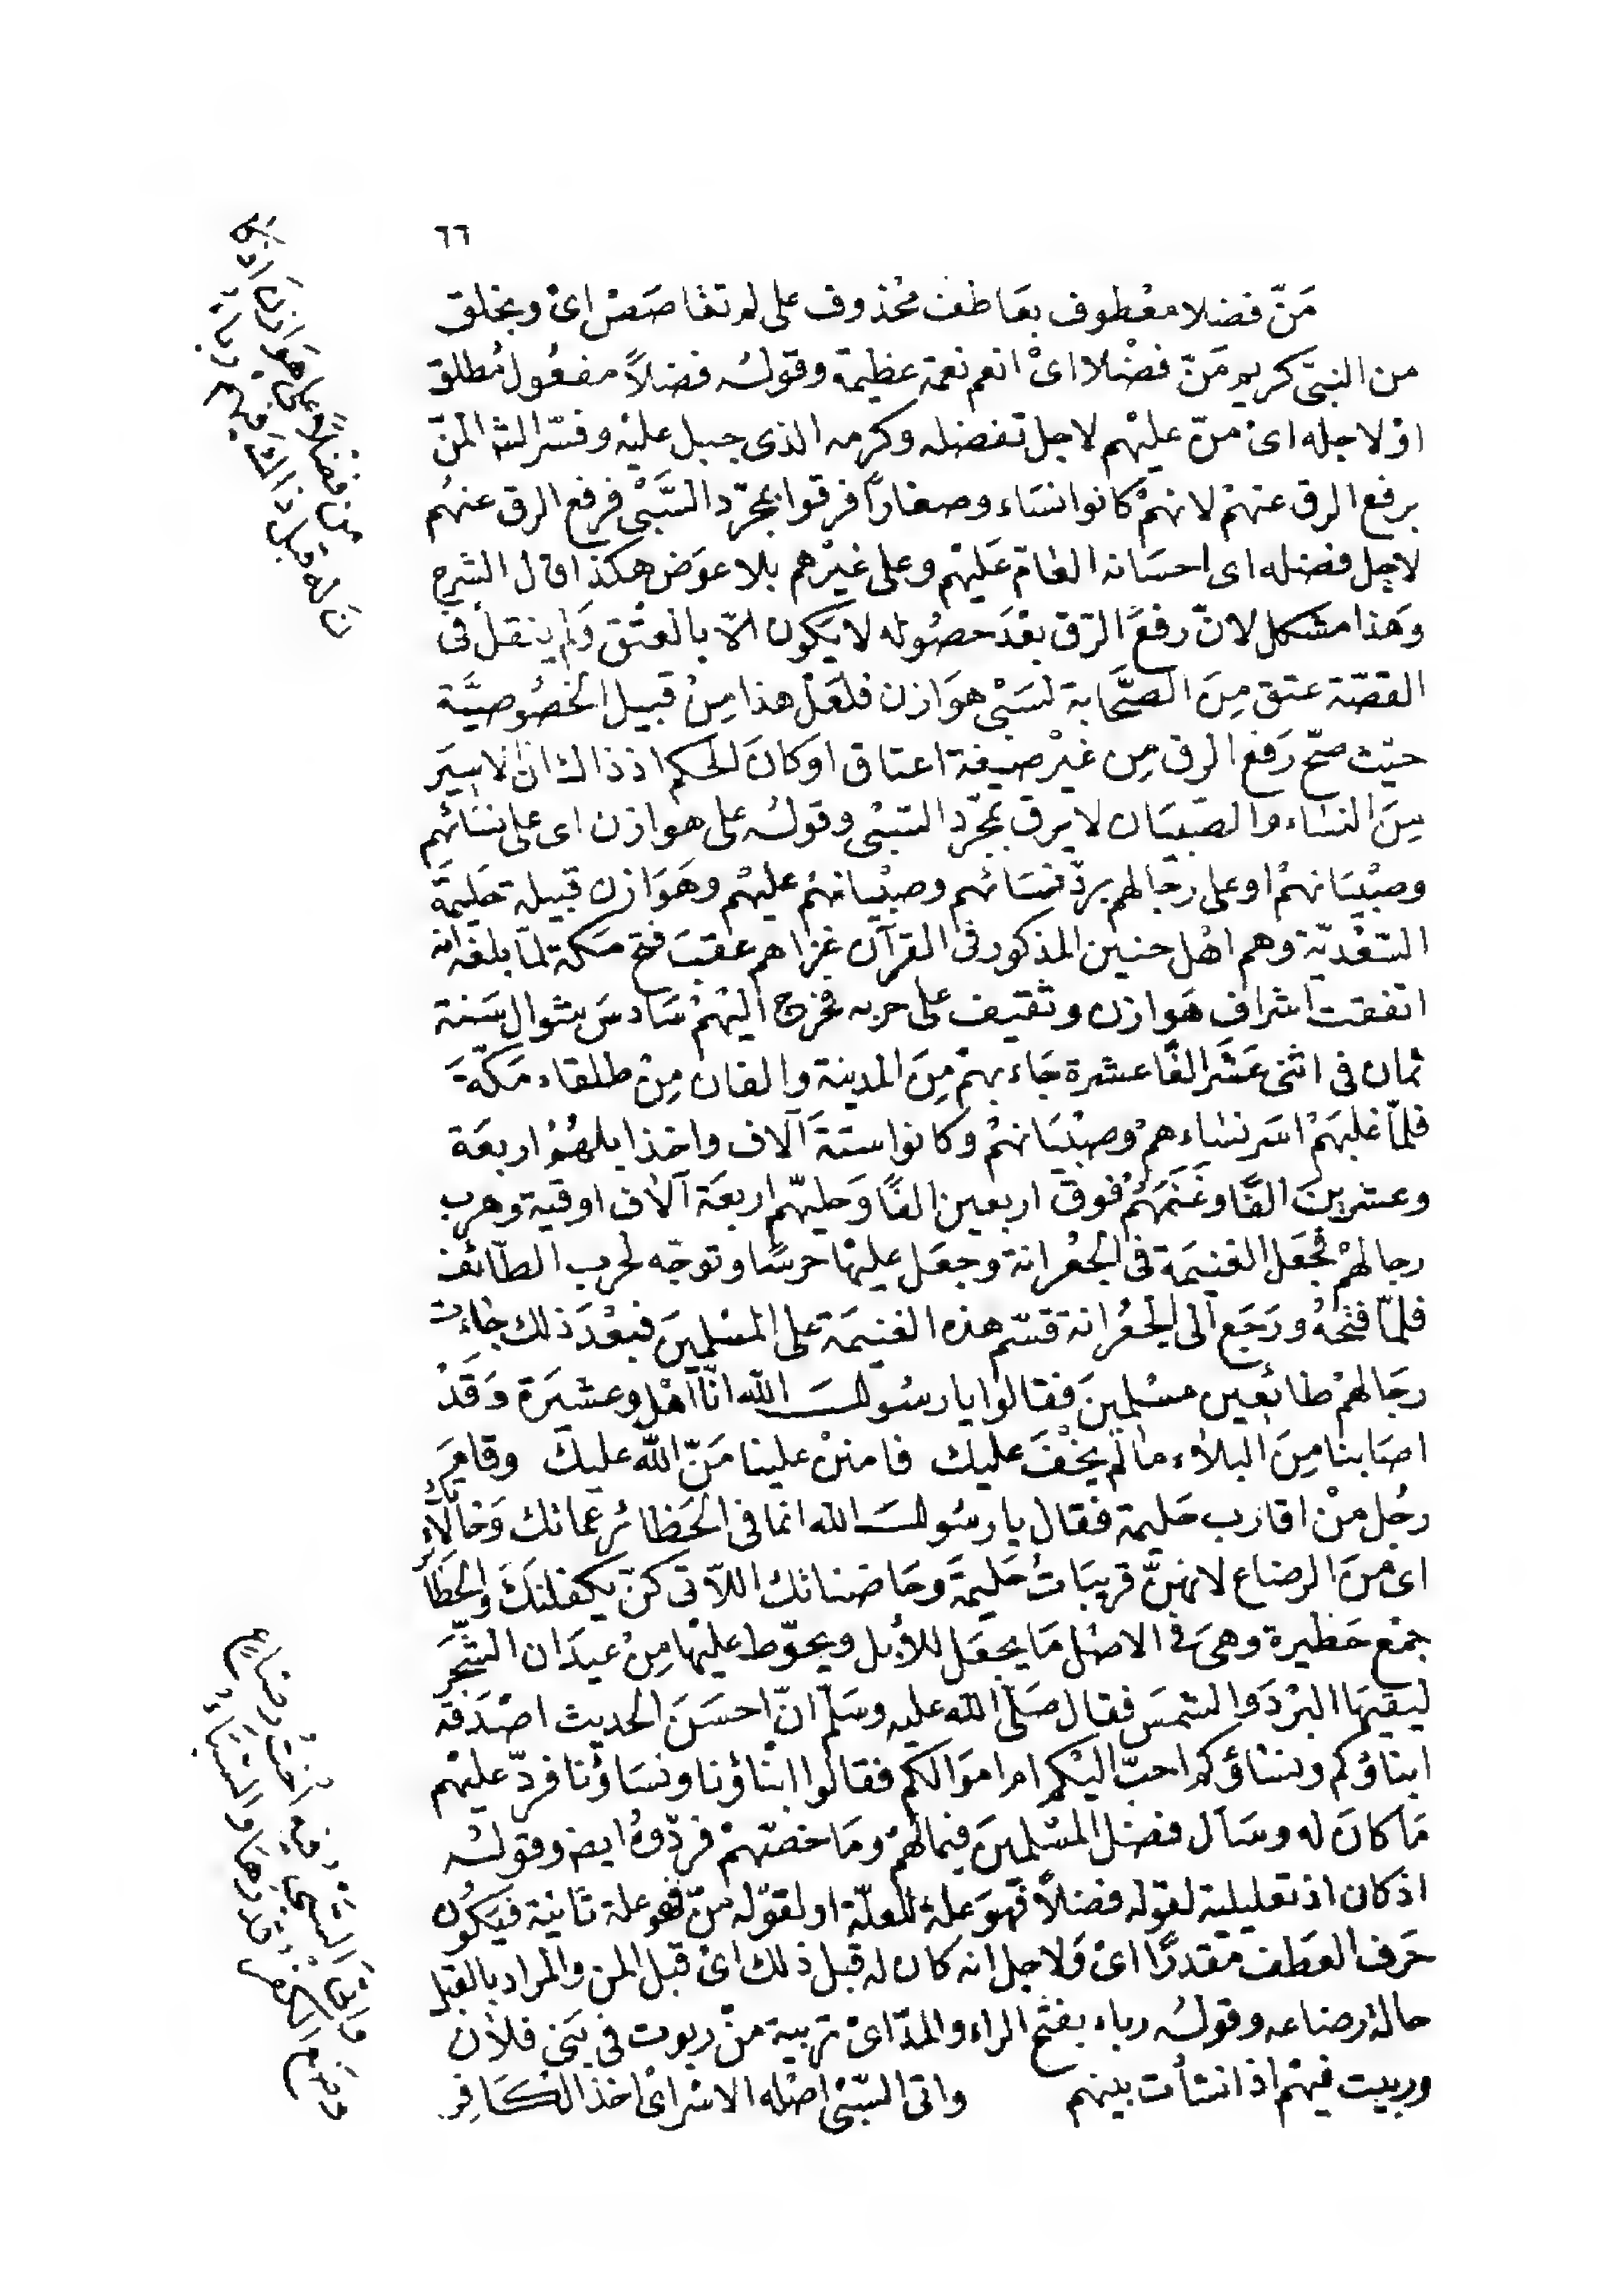 ٦٦
مَنّ فضلا معْطوف بعَاطف محْذوف على لم تقاصَصْ اىْ وبخلق
من النبىّ كريم مَنّ فضْلا اىْ انعم نعمة عظيمة وقولـُه فضلاً مفعُول مُطلق
اوْ لاجله اىْ منّ عليْهم لاجل تفضله وكرمه الذى جبل عليْه وفسّر الشـ المنّ
برفع الرق عنهمْ لانهمْ كانوا نسَاء وصغاراً فرقوا بمجرّد السَّبْى فرفع الرق عنهُم
لاجل فضله اى احسَانه العَامّ عَليْهم وعلى غيْرهم بلا عوَض هكذا قال الشرح
وَهذا مشكل لانّ رفعَ الرّق بعْدَ حصُوله لا يكون الاّ بالعتْق وَلم ينقل فى
القصّة عتق مِنَ الصَّحَابة لسَبْى هوَازن فلعَلّ هذا مِنْ قبيل الخصُوصيَّة
حيْث صحّ رَفع الرق مِن غيْر صيغة اعتاق او كانَ الحكم اذ ذاك انّ الاسيَر
مِنَ النساء والصّبيَان لا يرق بمجرّد السّبْى وقولـُه على هوازن اى على نسَائهم
وصبْيَانهمْ او على رجَالهم بردّ نسَائهم وصبْيانهُم عليْهم وهَوَازن قبيلة حَليمَة
السّعْديّة وهم اهْل حنين المذكور فى القرآن غزاهم عقبَ فتح مَكة لمّا بلغه انه
اتفقت اشراف هَوازن وثقيف على حربه فخرج اليْهمْ سَادسَ شوال سَنة
ثمان فى اثنى عَشَر الفًا عشرة جَاء بهمْ مِنَ المدينة والفان مِنْ طلقاء مَكّةَ
فلمّا غلبَهمْ اسَر نسَاءهمْ وصبْيَانهمْ وكانوا ستةَ آلاف واخذ ابلهُمْ اربعَة
وعشرينَ الفًا وغَنَمَهُمْ فوق اربعين الفًا وَحليّهم اربعَة آلاف اوقية وهرب
رجالهمْ فجَعَل الغنيمَة فى الجعْرانة وجعَل عليْها حرسًا وتوجّه لحرب الطّائف
فلمّا فتحهُ ورَجَع الى الجعْرانة قسّم هذه الغنيمَة على المسْلمِينَ فبعْدَ ذلك جاءت
رجَالهمْ طائعِين مسْلمِينَ فقالوا يا رسُولـَ الله انّا اهْل وعشيَرة وَقَدْ
اصَابنا مِنَ البلاء ما لم يخْفَ عليك فامننْ علينا مَنّ الله عليكَ وقامَ
رجُل مِنْ اقارب حَليمة فقال يا رسُولـَ الله انما فى الحَظائر عماتك وَخالاتك
اىْ مِنَ الرضاع لانهنَّ قريبَاتُ حَليمَةَ وحَاضناتك اللاّتى كنّ يكفلنكَ وَالحظائر
جمْع حَظيرة وهىَ فى الاصْل مَا يجعَل للابل ويحوّط عليْها مِنْ عيدَان الشّجَر
ليقيَها البرْدَ والشمسَ فقال صَلّى الله عليه وسَلم انّ احسَنَ الحديث اصْدَقه
ابناؤكم ونسَاؤكمْ احبّ اليْكم ام امَوالكم فقالوا ابْناؤنا ونسَاؤنا فردّ عليْهم
مَا كانَ له وسَأل فضل المسْلمِينَ فيمَا لهمْ ومَا خصّهمْ فردّوهُ ايضـ وقولـُه
اذ كان اذ تعليلية لقوله فضلاً فهوَ علة للعلّة او لقوله منّ فهو علة ثانية فيَكُون
حَرف العَطف مقدرًا اىْ وَلاجل انه كان له قبل ذلك اىْ قبل المن والمراد بالقبل
حالة رضاعه وقولـُه رباء بفتح الراء والمدّ اىْ تربية منْ ربوت فى بَنى فلان
وربيت فيْهمْ اذا نشأت بينهم واتى السّبْى اصْله الاسْر اىْ اخذ الكَافِر
مَنّ فضْلاً على هوَازن اذ كا
نَ له قبل ذاك فيهم رباء
وأتى السّبْىُ فيه أختُ رضاعٍ
وضع الكفر قدرها والسّباء